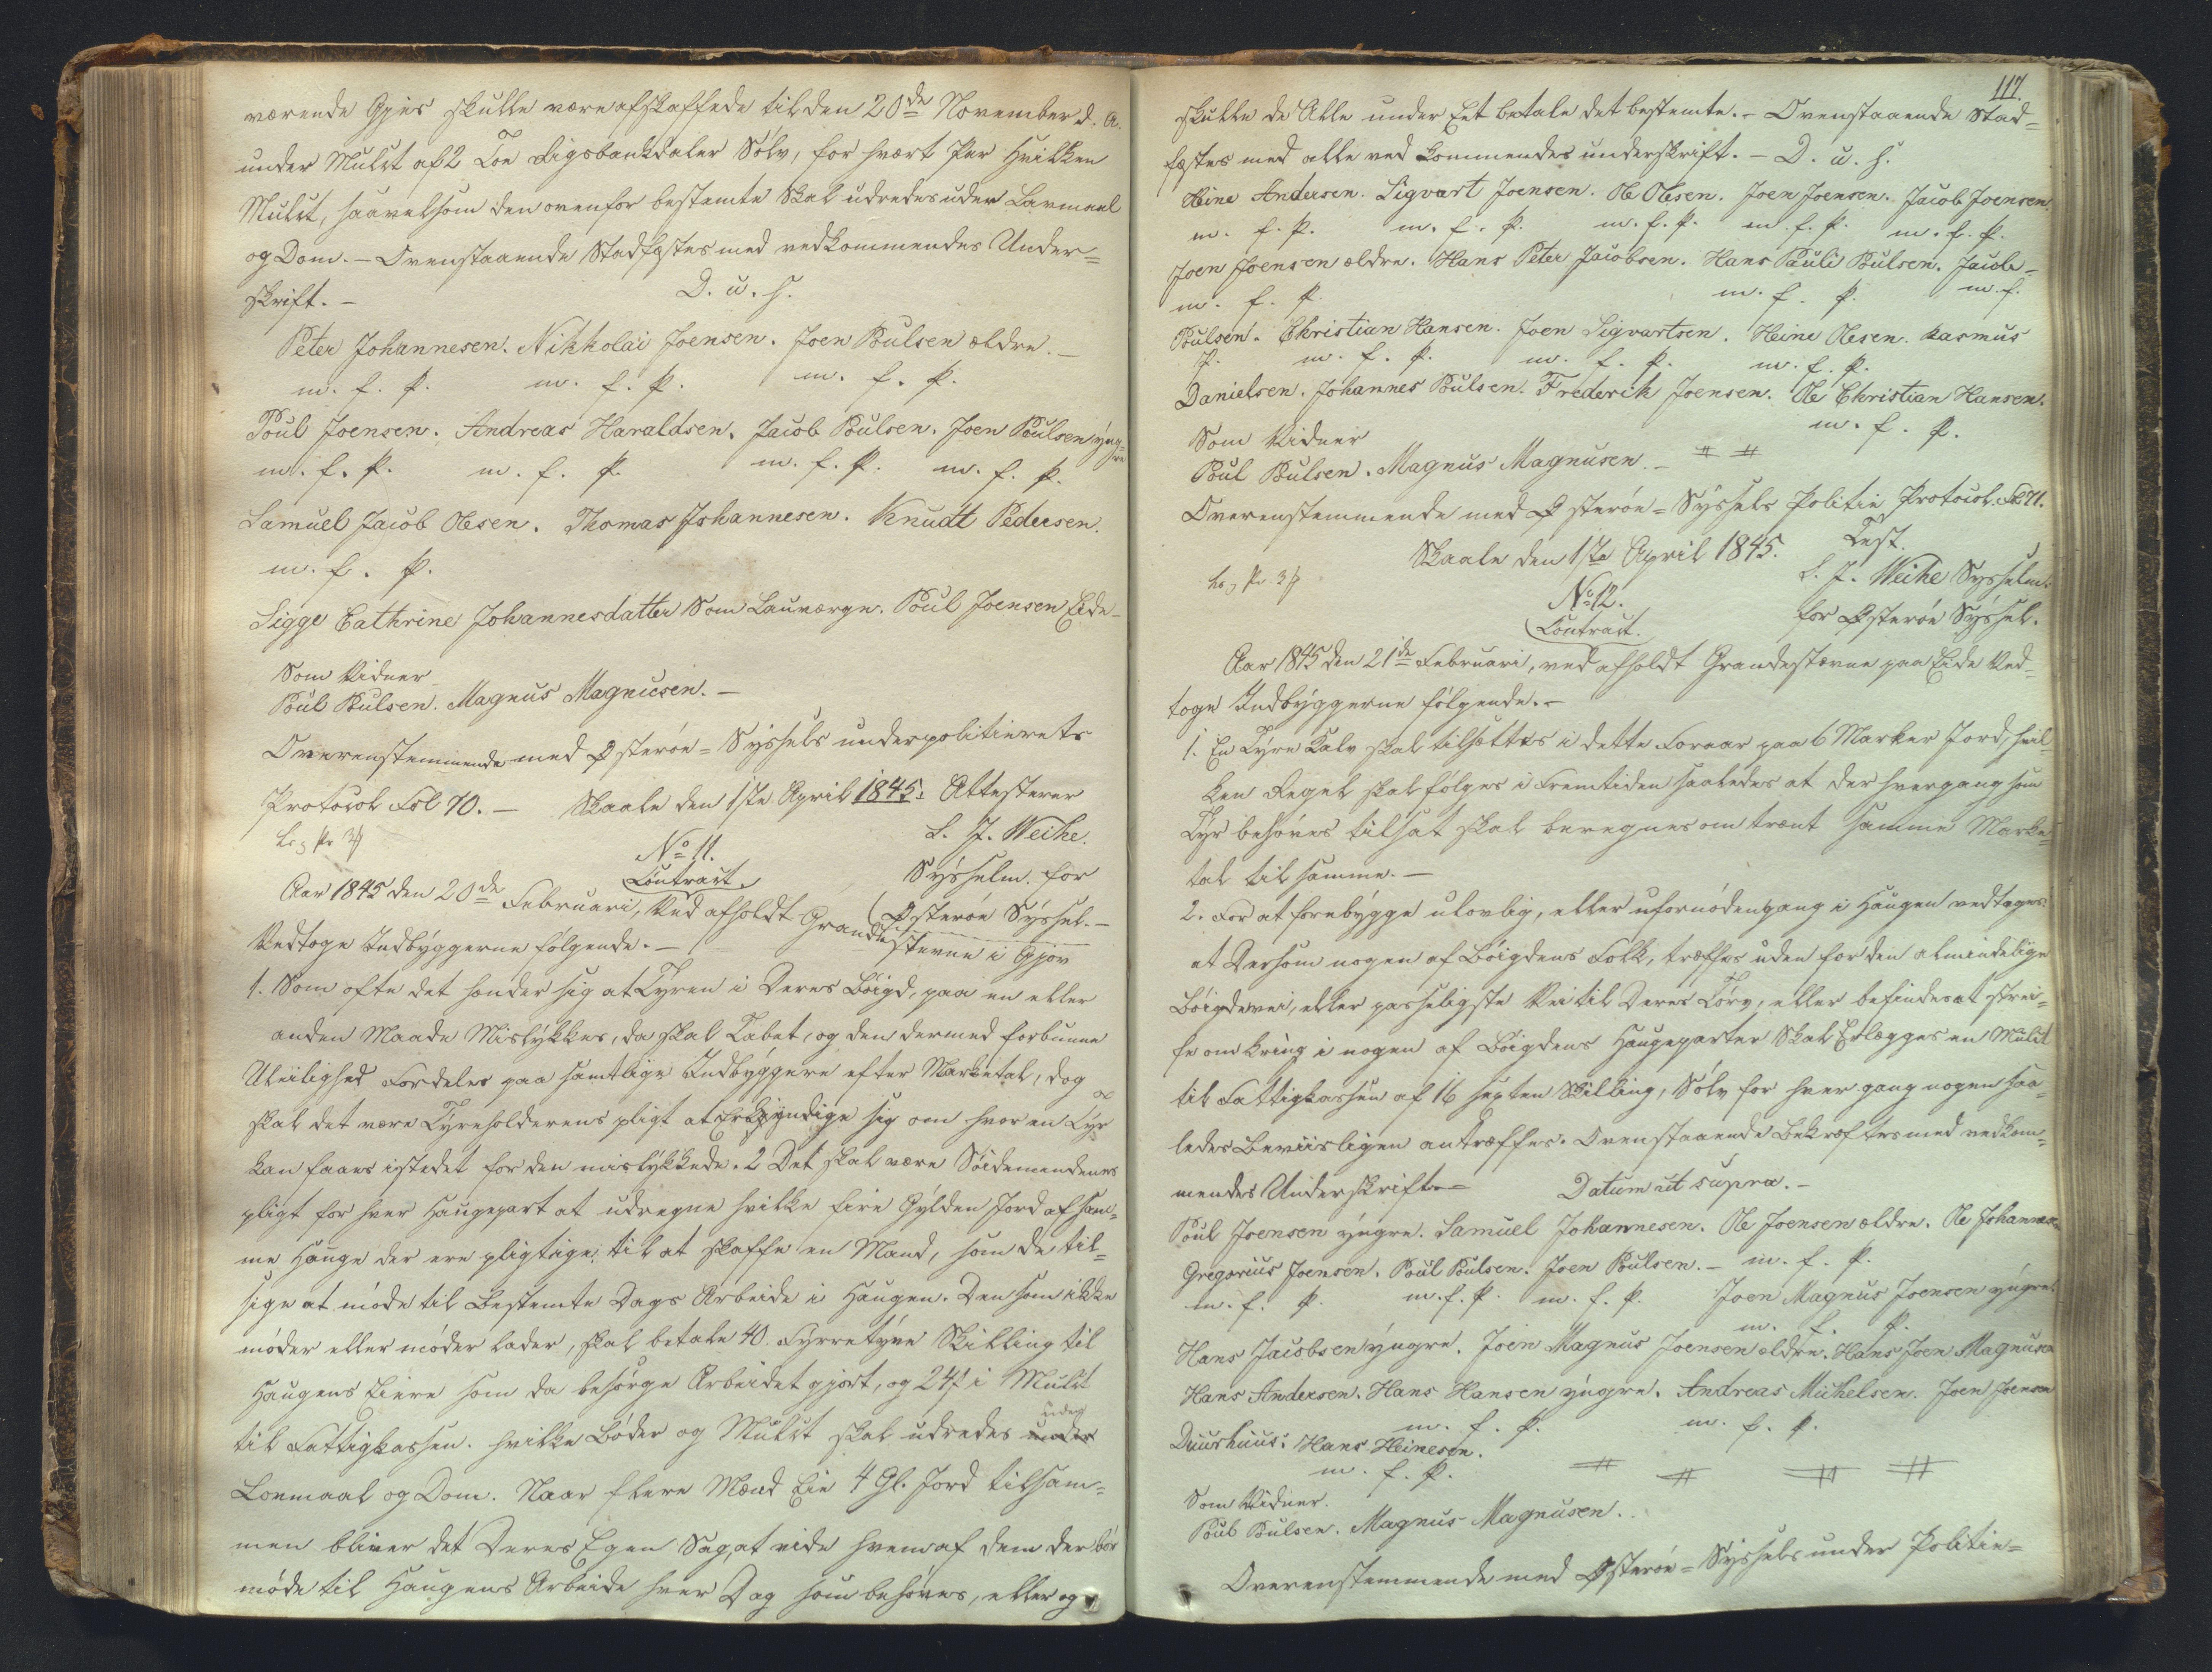 værende Gjes skulle være afskaffede til den 20de November d. A.
under Mulct af 2 Toe Rigsbankdaler Sølv, for hvert Par Hvilken
Mulct, saavelsom den ovenfor bestemte Skal udredes uden Lavmaal
og Dom. – Ovenstaaende Stadfæstes med vedkommendes Under=
skrift. – D. u. s.
Peter Johannesen. Nikkolai Joensen. Joen Poulsen ældre. –
m. f. P. m. f. P. m. f. P.
Poul Joensen. Andreas Haraldsen. Jacob Poulsen. Joen Poulsen yng=
re
m. f. P. m. f. P. m. f. P. m. f. P.
Samuel Jacob Olesen. Thomas Johannesen. Knudt Pedersen.
m. f. P.
Sigge Cathrine Johannesdatter Som Lauværge. Poul Joensen Eide –
Som Vidner
Poul Poulsen. Magnus Magnusen. –
Overenstemmende med Østerøe=Syssels underpolitierets
Protocol Fol 70. – Skaale den 1ste April 1845. Attesterer
L. J. Weihe.
Sysselm. for
Østerøe Syssel. –
No 11.
Contract.
Aar 1845 den 20de Februari, Ved afholdt Grandestevne i Gjov
Vedtoge Indbyggerne følgende. –
1. Som ofte det hender sig at Tyren i Deres Bøigd, paa en eller
anden Maade Mislykkes, da skal Tabet, og den dermed forbunne
Uleilighed Fordeles paa samtlige Indbyggere efter Marketal, dog
skal det være Tyreholderens pligt at Erkyndige sig om hvor en Tyr
kan faaes istedet for den mislykkede. 2 Det skal være Søidemendenes
pligt for hver Haugepart at udregne hvilke fire Gylden Jord af sam=
me Hauge der ere pligtige til at skaffe en Mand, som de til=
sige at møde til Bestemte Dags Arbeide i Haugen. Den som ikke
møder eller møder lader, skal betale 40. Fyrretyve Skilling til
Haugens Eiere som da besørge Arbeidet gjort, og 24 ß i Mulct
til Fattigkassen. hvilke Bøder og Mulct skal udredes uden
Lovmaal og Dom. Naar flere Mænd Eie 4 Gl. Jord tilsam=
men bliver det Deres Egen Sag, at vide hvem af dem der bør
møde til Haugens Arbeide hver Dag som behøves, eller og
117.
skulle de Alle under Eet betale det bestemte. – Ovenstaaende Stad=
fæstes med alle ved kommendes underskrift. – D. u. s.
Heine Andersen. Sigvart Joensen. Ole Olesen. Joen Joensen. Jacob Joensen.
m. f. P. m. f. P. m. f. P. m. f. P. m. f. P.
Joen Joensen ældre. Hans Peter Jacobsen. Hans Pauli Poulsen. Jacob=
m. f. P. m. f. P. m. f.
Poulsen. Christian Hansen. Joen Sigvartsen. Heine Olesen. Rasmus
P. m. f. P. m. f. P. m. f. P.
Danielsen. Johannes Poulsen. Frederik Joensen. Ole Christian Hansen.
m. f. P.
Som Vidner
Poul Poulsen. Magnus Magnusen. –
Overenstemmende med Østerøe=Syssels Politie Protocol. Fol 71.
Skaale den 1ste April 1845. Test.
L. J. Weihe Sysselm.
for Østerøe Syssel.
No 12.
Contract.
Aar 1845 den 21de Februari, ved afholdt Grandestævne paa Eide Ved=
toge Indbyggerne følgende. –
1. En Tyre Kalv skal tilsættes i dette Foraar paa 6 Marker Jord, hvil
ken Regel skal følges i Fremtiden saaledes at der hvergang som
Tyr behøves tilsat skal beregnes om trent samme Marke=
tal til samme. –
2. For at forebygge ulovlig, eller ufornøden gang i Haugen vedtages
at Dersom nogen af Bøigdens Folk, træffes uden for den almindelige
Bøigdevei, eller passeligste Vei til Deres Tørv, eller befindes at strei=
fe omkring i nogen af Bøigdens Haugeparter Skal Erlægges en Mulct
til Fattigkassen af 16 sexten Skilling, Sølv for hver gang nogen saa
ledes Beviisligen antræffes. Ovenstaaende Bekræftes med vedkom=
mendes Underskrift. – Datum ut supra. –
Poul Joensen yngre. Samuel Johannesen. Ole Joensen ældre. Ole Johannesen
Gregorius Joensen. Poul Poulsen. Joen Poulsen. – m. f. P.
m. f. P. m. f. P. m. f. P. Joen Magnus Joensen yngre.
m. f. P.
Hans Jacobsen yngre. Joen Magnus Joensen ældre. Hans Joen Magnusen
Hans Andersen. Hans Hansen yngre. Andreas Michelsen. Joen Joensen
m. f. P. m. f. P.
Duurhuus: Hans Heinesen.
m. f. P.
Som Vidner.
Poul Poulsen. Magnus Magnusen.
Overenstemmende med Østerøe=Syssels under Politie=